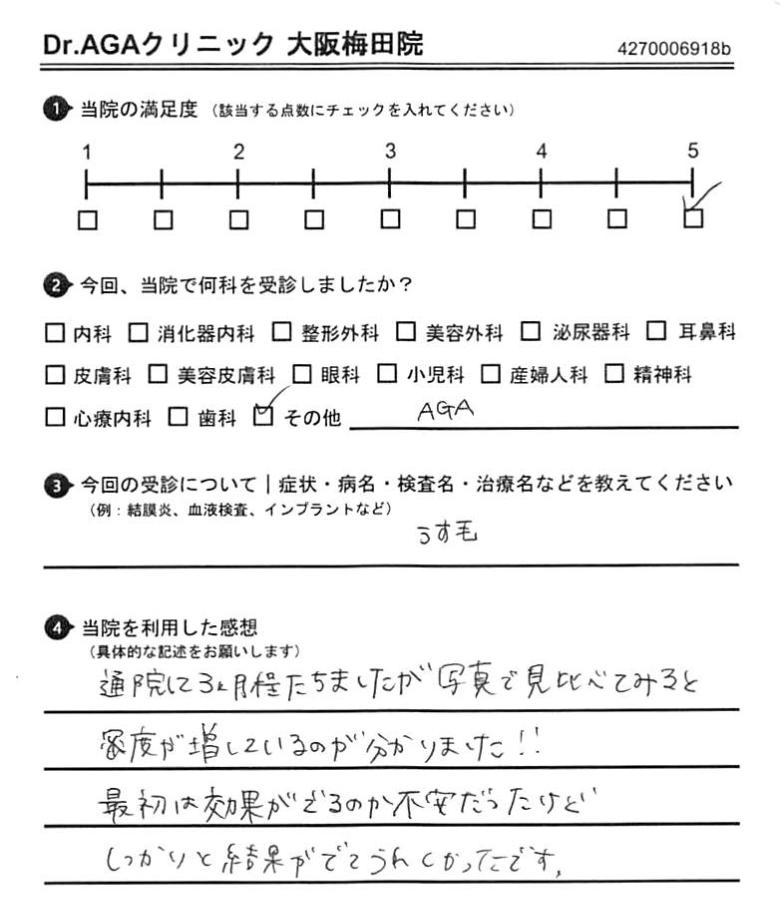 Dr.AGAクリニック 大阪梅田院 4270006918b
1 当院の満足度 (該当する点数にチェックを入れてください)
1 2 3 4 5
2 今回、当院で何科を受診しましたか?
内科 消化器内科 整形外科 美容外科 泌尿器科 耳鼻科
皮膚科 美容皮膚科 眼科 小児科 産婦人科 精神科
心療内科 歯科 その他 AGA
3 今回の受診について|症状・病名・検査名・治療名などを教えてください
(例:結膜炎、血液検査、インプラントなど)
うす毛
4 当院を利用した感想
(具体的な記述をお願いします)
通院して3ヵ月程たちましたが写真で見比べてみると
密度が増しているのが分かりました!!
最初は効果がでるのか不安だったけど
しっかりと結果がでてうれしかったです。